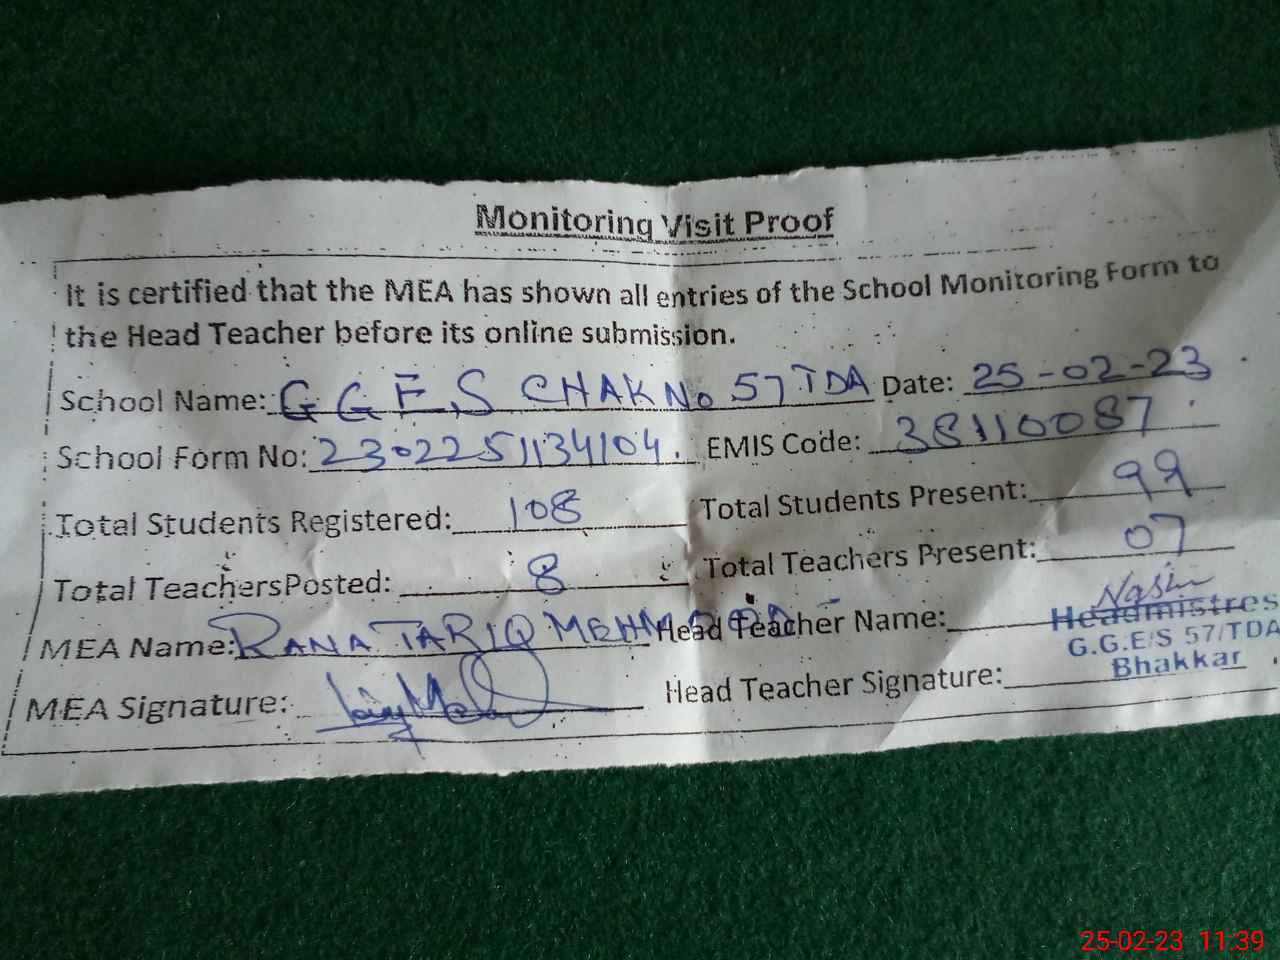 Monitoring Visit Proof
It is certified that the MEA has shown all entries of the School Monitoring Form to
the Head Teacher before its online submission.
School Name: G G E S CHAK No 57 TDA Date: 25-02-23
School Form No: 2302251134104. EMIS Code: 38110087
Total Students Registered: 108 Total Students Present: 99
Total TeachersPosted: 8 Total Teachers Present: 07
MEA Name: RANA TARIQ MEHMOOD Head Teacher Name:
Headmistres
G.G.E/S 57/TDA
Bhakkar
MEA Signature: Head Teacher Signature:
25-02-23 11:39